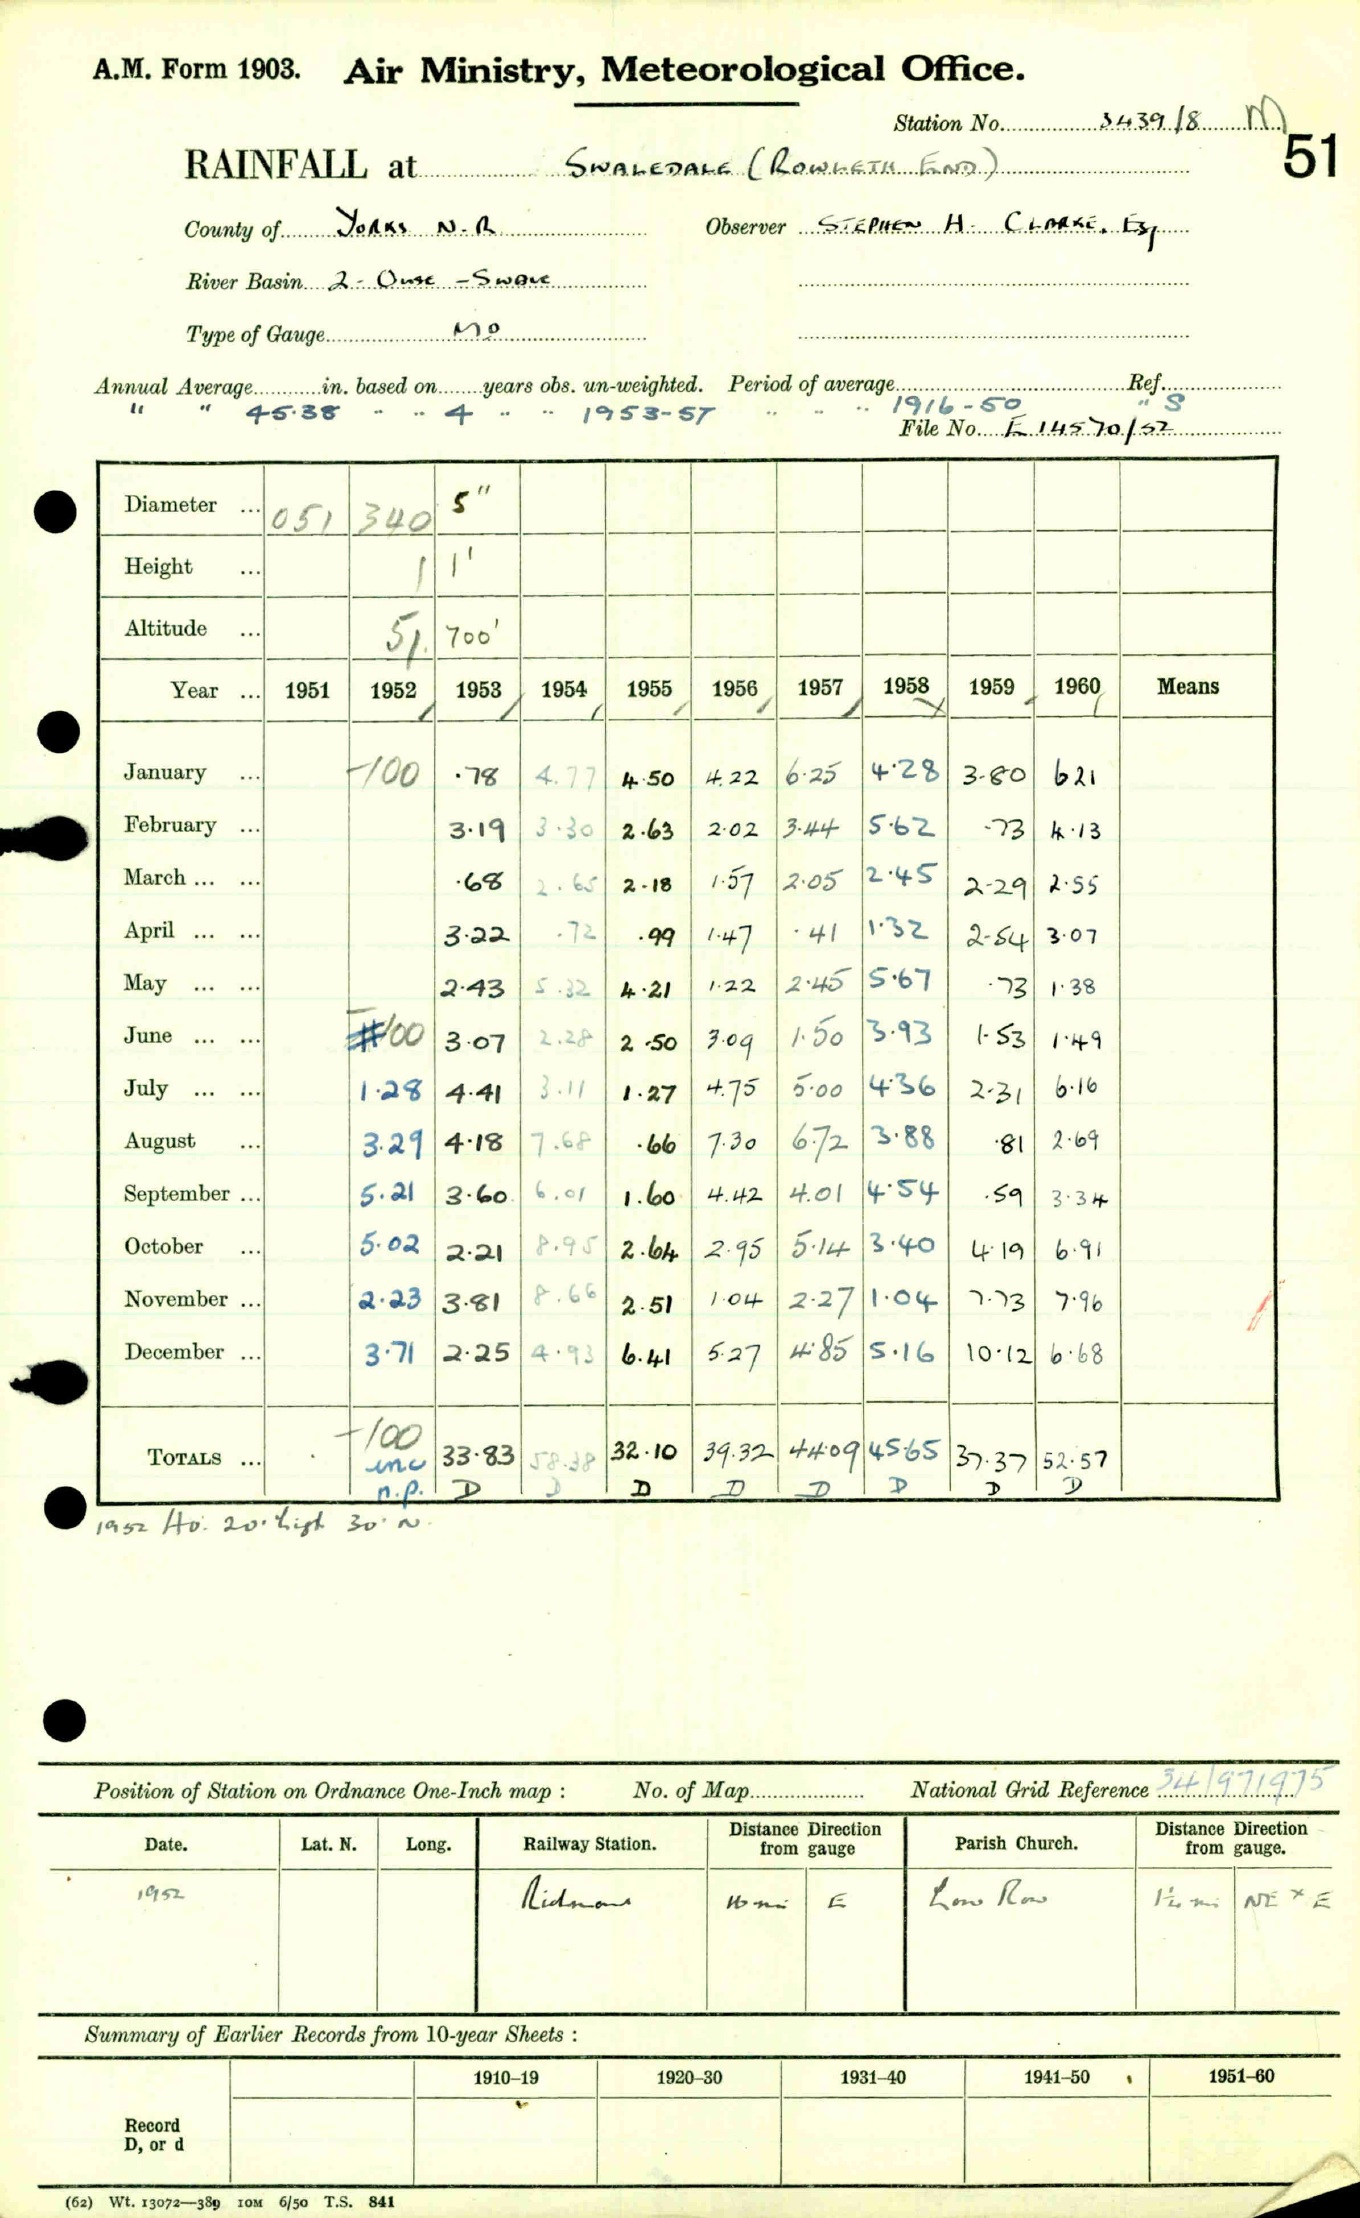 A.M. Form 1903. Air Ministry, Meteorological Office.
Station No. 3439/8 M
51
RAINFALL at SWALEDALE (ROWLETH END)
County of YORKS N.R Observer STEPHEN H. CLARKE, Esq
River Basin 2 - Ouse - Swale
Type of Gauge MO
Annual Average in. based on years obs. un-weighted. Period of average Ref.
" " 45.38 " " 4 " " 1953-57 " " " 1916-50 " S
File No. E 14570/52
Diameter ... 051 340 5"
Height ... 1 1'
Altitude ... 51. 700'
Year ... 1951 1952 1953 1954 1955 1956 1957 1958 1959 1960 Means
January ... -100 .78 4.77 4.50 4.22 6.25 4.28 3.80 6 21
February ... 3.19 3.30 2.63 2.02 3.44 5.62 .73 4.13
March ... ... .68 2.65 2.18 1.57 2.05 2.45 2.29 2.55
April ... ... 3.22 .72 .99 1.47 .41 1.32 2.54 3.07
May ... ... 2.43 5.32 4.21 1.22 2.45 5.67 .73 1.38
June ... ... -100 3.07 2.28 2.50 3.09 1.50 3.93 1.53 1.49
July ... ... 1.28 4.41 3.11 1.27 4.75 5.00 4.36 2.31 6.16
August ... 3.29 4.18 7.68 .66 7.30 6.72 3.88 .81 2.69
September ... 5.21 3.60 6.01 1.60 4.42 4.01 4.54 .59 3.34
October ... 5.02 2.21 8.95 2.64 2.95 5.14 3.40 4.19 6.91
November ... 2.23 3.81 8.66 2.51 1.04 2.27 1.04 7.73 7.96
December ... 3.71 2.25 4.93 6.41 5.27 4.85 5.16 10.12 6.68
TOTALS ... -100 33.83 58.38 32.10 39.32 44.09 45.65 37.37 52.57
inc
n.p. D D D D D D D D
1952 Ho. 20' high 30' N.
Position of Station on Ordnance One-Inch map : No. of Map National Grid Reference 34/971975
Date. Lat. N. Long. Railway Station. Distance from Direction gauge Parish Church. Distance from Direction gauge.
1952 Richmond 10 mi E Low Row 1½ mi NE x E
Summary of Earlier Records from 10-year Sheets :
1910–19 1920–30 1931–40 1941–50 1951–60
Record
D, or d
(62) Wt. 13072—389 10M 6/50 T.S. 841